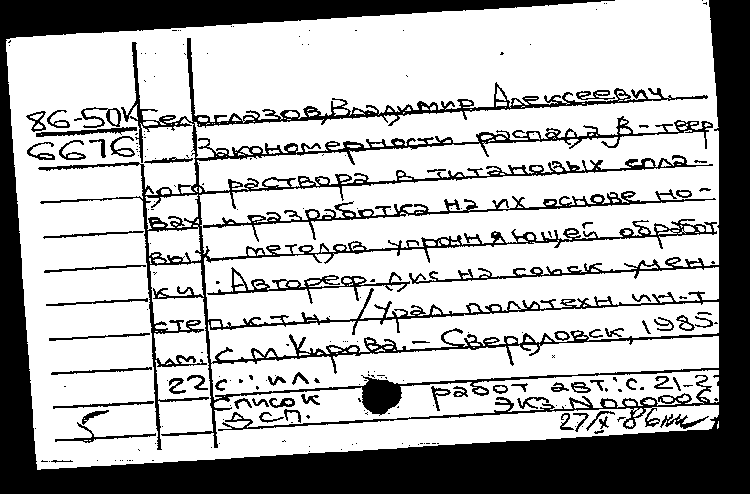 86-50к Белоглазов, Владимир Алексеевич.
6676 Закономерности распада β-твер-
дого раствора в титановых спла-
вах и разработка на их основе но-
вых методов упрочняющей обработ
ки.: Автореф. дис на соиск. учен.
степ. к.т.н. / Урал. политехн. ин-т
им. С.М.Кирова. - Свердловск, 1985.
22 с.: ил.
Список работ авт.: с. 21-22
ДСП. ЭКЗ.N000006.
5 27/X-86